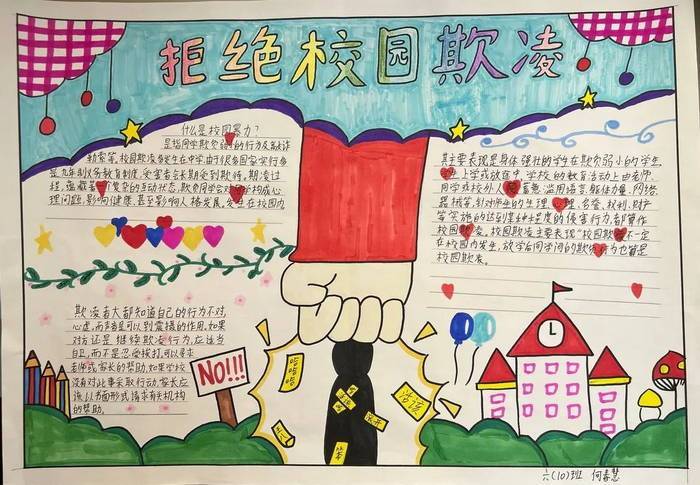 拒绝校园欺凌
什么是校园暴力?
是指同学欺负弱的行为及敲诈
勒索等,校园欺凌多发生在中学,由于很多国家实行多
是九年制义务教育制度,受害者会长期受到欺侍,期凌过
程,蕴藏着复杂的互动状态,欺负同学会对同学构成心
理问题,影响健康,甚至影响人格发展,发生在校园内
其主要表现是身体强壮的学生在欺负弱小的学生,
上学或放直中,学校的教育活动上由老师,
同学或校外人蓄意滥用语言,躯体力量,网络,
器械等,针对师生的生理,名誉,权利,财产
等实施的达到某种程度的侵害行为,都算作
校园欺凌,校园欺凌主要表现"校园欺凌不一定
在校园内发生,放学后同学间的欺负行为也算是
校园欺凌。
欺凌者大都知道自己的行为不对,
心虚,而声音足可以到震摄的作用,如果
对方还是继续欺凌行为,应该当
自卫,而不是忍受挨打,可以寻求
老师或家长的帮助,如果学校
没有对此事采取行动,家长应
该以书面形式请求有关机构
的帮助。
NO!!!
哈哈哈
活该
笨
六(10)班 何春慧